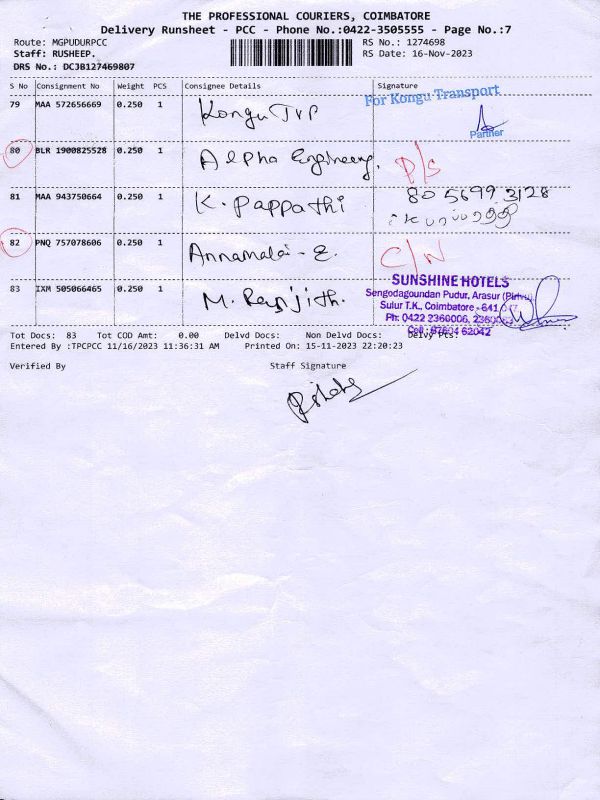 THE PROFESSIONAL COURIERS, COIMBATORE
Delivery Runsheet - PCC - Phone No.:0422-3505555 - Page No.:7
Route: MGPUDURPCC RS No.: 1274698
Staff: RUSHEEP. RS Date: 16-Nov-2023
DRS No.: DCJB127469807
S No Consignment No Weight PCS Consignee Details Signature
79 MAA 572656669 0.250 1 Kongu TVP For Kongu Transport
Partner
80 BLR 1900825528 0.250 1 Alpha Engineeng. P/S
81 MAA 943750664 0.250 1 K. Pappathi 80 5699 3128
82 PNQ 757078606 0.250 1 Annamalai - E. C/N
83 IXM 505066465 0.250 1 M. Ranjith. SUNSHINE HOTELS
Sengodagoundan Pudur, Arasur (Pirivu)
Sulur T.K., Coimbatore - 641
Ph: 0422 2360006,
Cell : 87604 62042
Tot Docs: 83 Tot COD Amt: 0.00 Delvd Docs: Non Delvd Docs: Delvy Pts:
Entered By :TPCPCC 11/16/2023 11:36:31 AM Printed On: 15-11-2023 22:20:23
Verified By Staff Signature